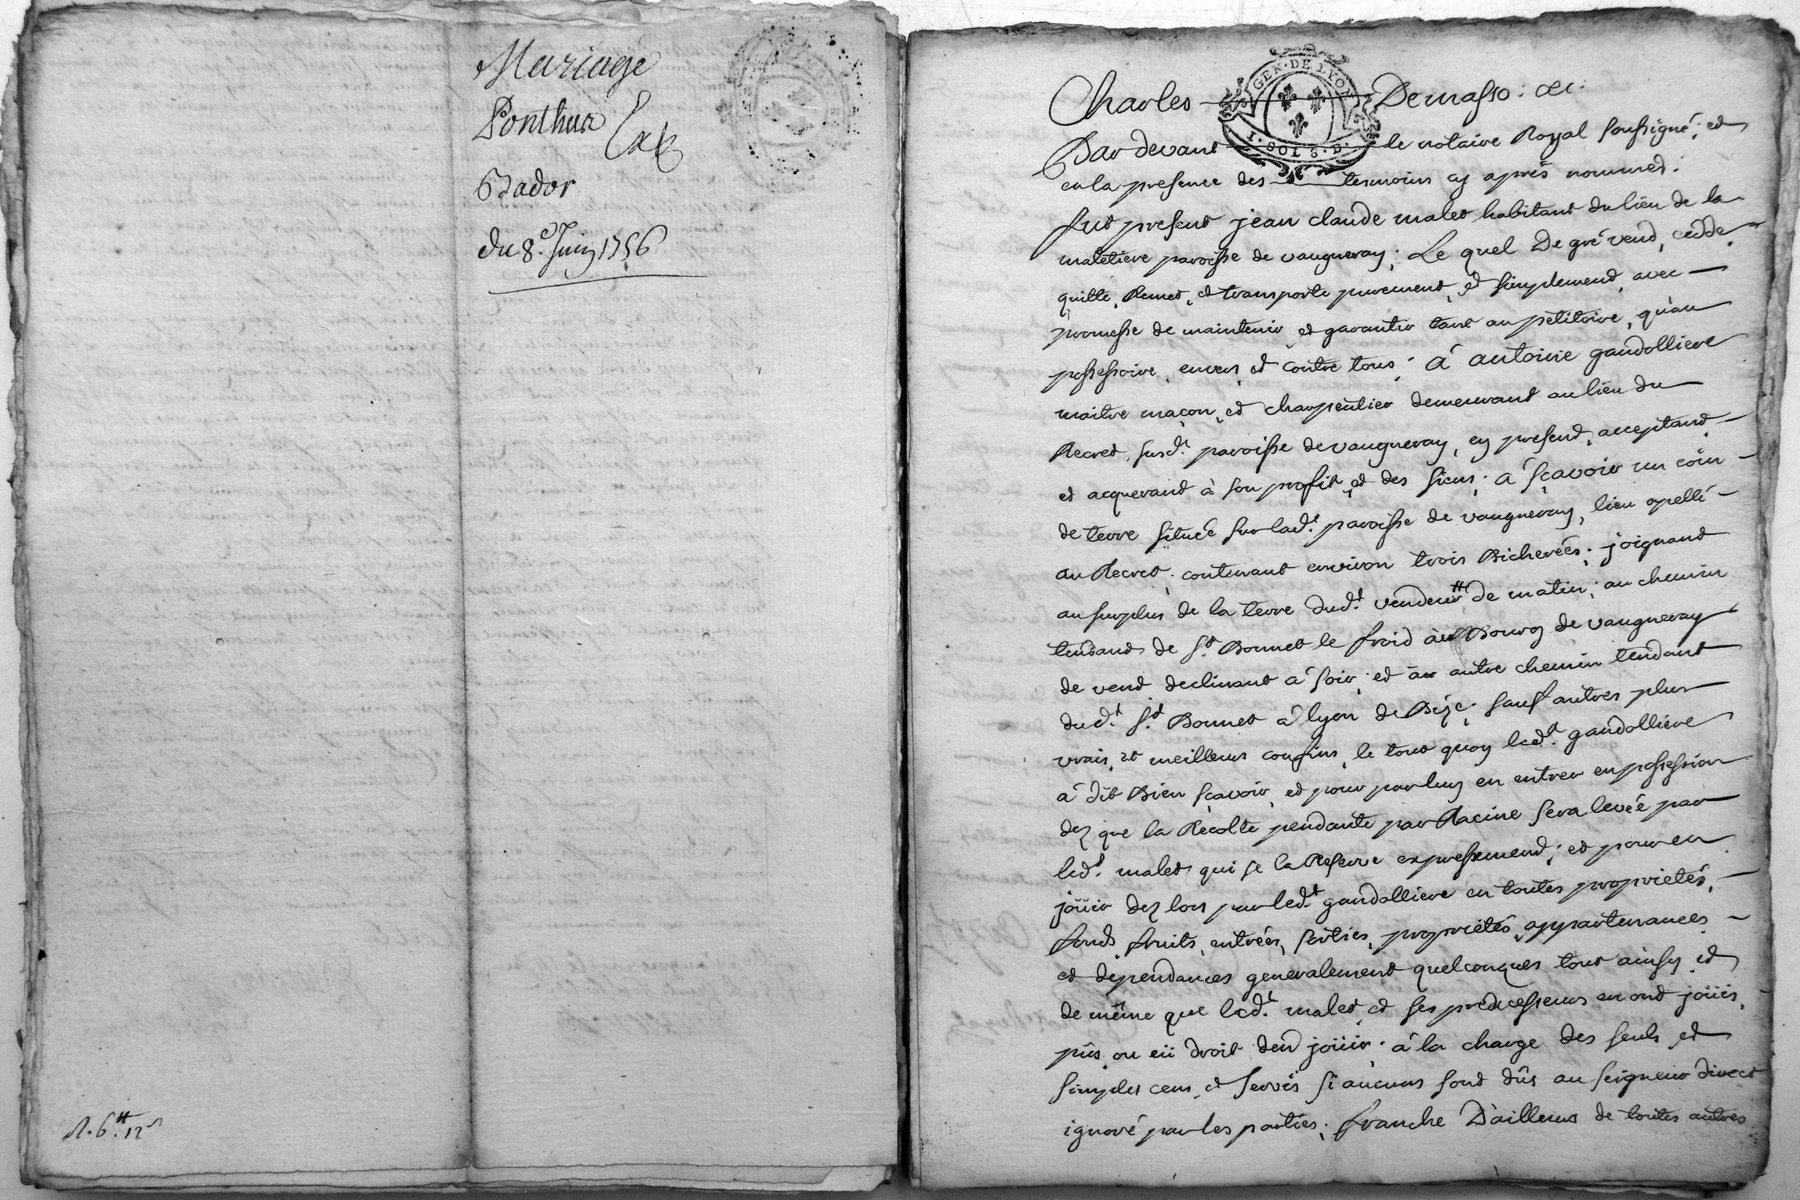 Mariage
Ponthus
Ex
Bador
du 8e. Juin 1756
R. 6tt. 12s
GEN. DE LYON
I. SOL 8. D.
Charles Demasso: &c:
Par devant le notaire Royal soussigné; et
en la presence des tesmoins cy aprés nommés:
fut present jean claude malet habitant du lieu de la
maletiere paroisse de vaugneray; Le quel De gré vend, cedde,
quitte, Remet, et transporte purement, et simplement, avec
promesse de maintenir et garantir tant au pétitoire, qu'au
possessoire, envers, et contre tous; à antoine gandolliere
maitre maçon, et charpentier demeurant au lieu du
Recret, susdt. paroisse de vaugneray, cy present, acceptant
et acquerant à son profit, et des siens; à sçavoir un coin
de terre située sur ladt. paroisse de vaugneray, lieu apellé
au Recret, contenant environ trois Bicherées; joignant
au surplus de la terre dudt. vendeur de matin; au chemin
tendant de st. Bonnet le froid au Bourg de vaugneray
de vend declinant à soir; et à autre chemin tendant
dudt. st. Bonnet à lyon de Bize; sauf autres plus
vrais, et meilleurs confins, le tout quoy ledt. gandolliere
à dit Bien sçavoir, et pour par luy en entrer en possession
dez que la Récolte pendante par Racine sera levée par
ledt. malet, qui se la Reserve expressement; et pour en
joüir dez lors par ledt. gandolliere en toutes proprietés,
fonds, fruits, entrées, sorties, propriétés, appartenances
et dépendances generalement quelconques tout ainsy, et
de même que ledt. malet, et ses prédecesseurs en ont joüis,
pûs, ou eü droit d'en joüir; à la charge des seuls, et
simples cens, et servis si aucuns sont dûs au seigneur direct
ignoré par les parties; franche D'ailleurs de toutes autres